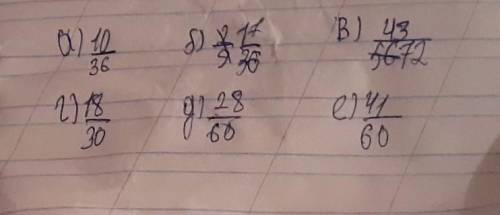 а) 10/36 б) 17/36 в) 43/72
г) 18/30 д) 28/60 е) 41/60